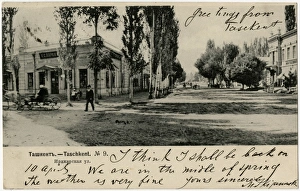 Greetings from
Tashkent
Ташкентъ. — Taschkent. № 9.
I think I shall be back on
10 April We are in the middle of spring
The weather is very fine Yours sincerely